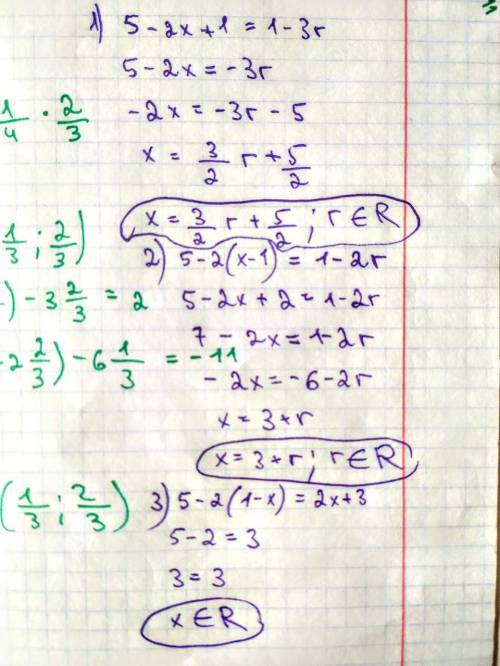 1) 5 - 2x + 1 = 1 - 3r
5 - 2x = -3r
-2x = -3r - 5
x = 3/2 r + 5/2
x = 3/2 r + 5/2 ; r ∈ R
2) 5 - 2(x - 1) = 1 - 2r
5 - 2x + 2 = 1 - 2r
7 - 2x = 1 - 2r
- 2x = -6 - 2r
x = 3 + r
x = 3 + r ; r ∈ R
3) 5 - 2(1 - x) = 2x + 3
5 - 2 = 3
3 = 3
x ∈ R
1/4 · 2/3
1/3 ; 2/3)
) - 3 2/3 = 2
2 2/3) - 6 1/3 = -11
(1/3 ; 2/3)